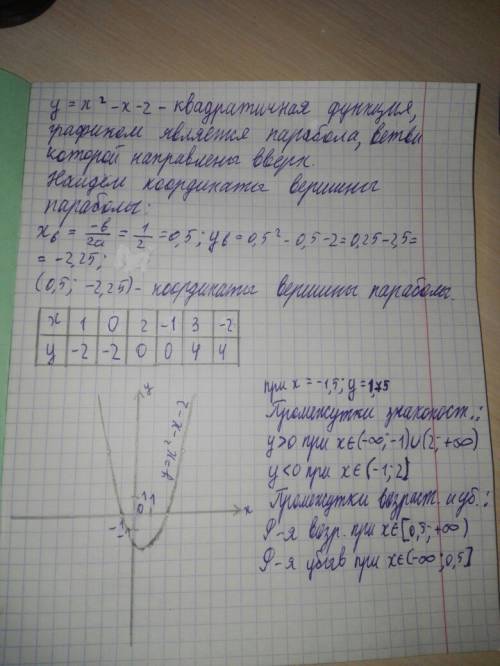 y = x² - x - 2 - квадратичная функция,
графиком является парабола, ветви
которой направлены вверх.
Найдем координаты вершины
параболы:
xв = -b/2a = 1/2 = 0,5; yв = 0,5² - 0,5 - 2 = 0,25 - 2,5 =
= -2,25;
(0,5; -2,25) - координаты вершины параболы.
x 1 0 2 -1 3 -2
y -2 -2 0 0 4 4
при x = -1,5; y = 1,75
Промежутки знакопост.:
y>0 при x∈(-∞; -1)∪(2; +∞)
y<0 при x∈(-1; 2]
Промежутки возраст. и уб.:
Ф-я возр. при x∈[0,5; +∞)
Ф-я убыв при x∈(-∞; 0,5]
y
y = x² - x - 2
1
0 1
x
-1